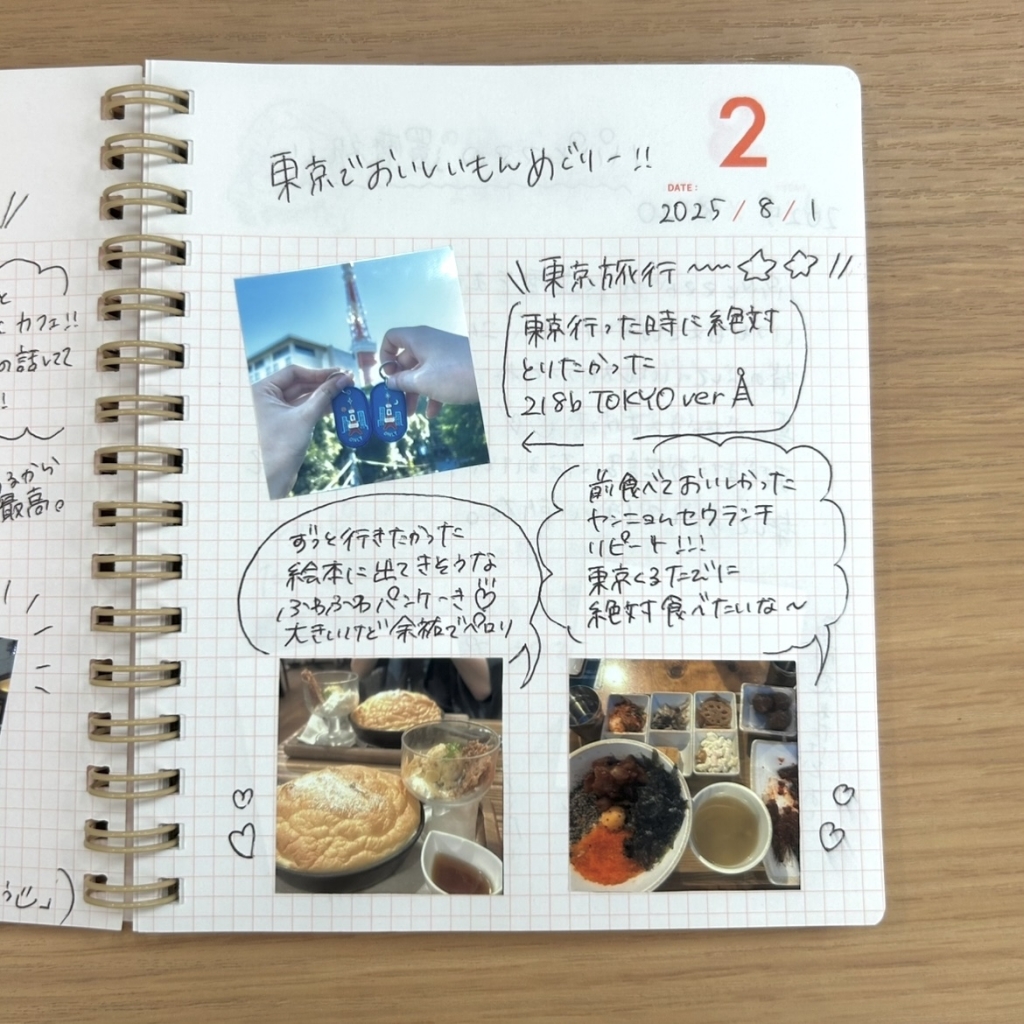 カフェ!!
の話してて
るから
最高。
2
東京でおいしいもんめぐりー!!
DATE:
2025/8/1
東京旅行
東京行った時に絶対
とりたかった
218b TOKYO ver
前食べておいしかった
ヤンニョムセウランチ
リピート!!!
東京くるたびに
絶対食べたいな〜
ずっと行きたかった
絵本に出てきそうな
ふわふわパンケーき
大きいけど余裕でペロリ